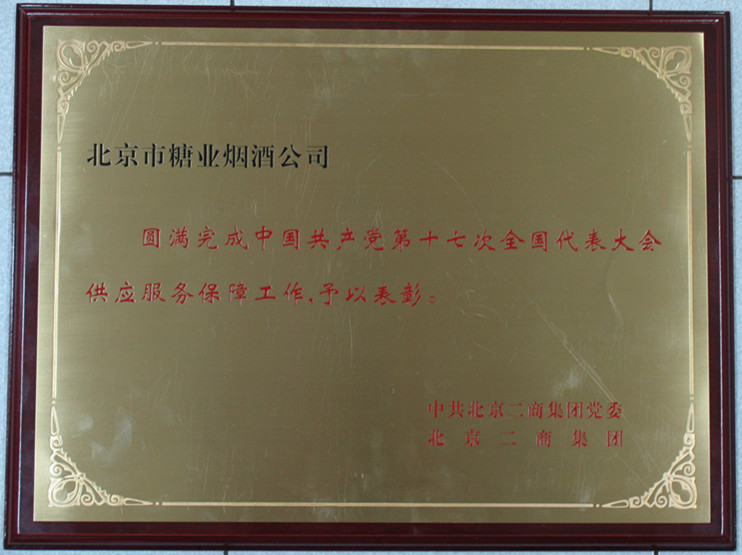 北京市糖业烟酒公司
圆满完成中国共产党第十七次全国代表大会
供应服务保障工作,予以表彰。
中共北京二商集团党委
北京二商集团